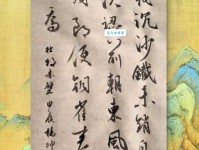 戟沉沙鐵未銷自
洗認前朝東風
周郎便銅雀春
喬
杜牧赤壁甲辰楊坤